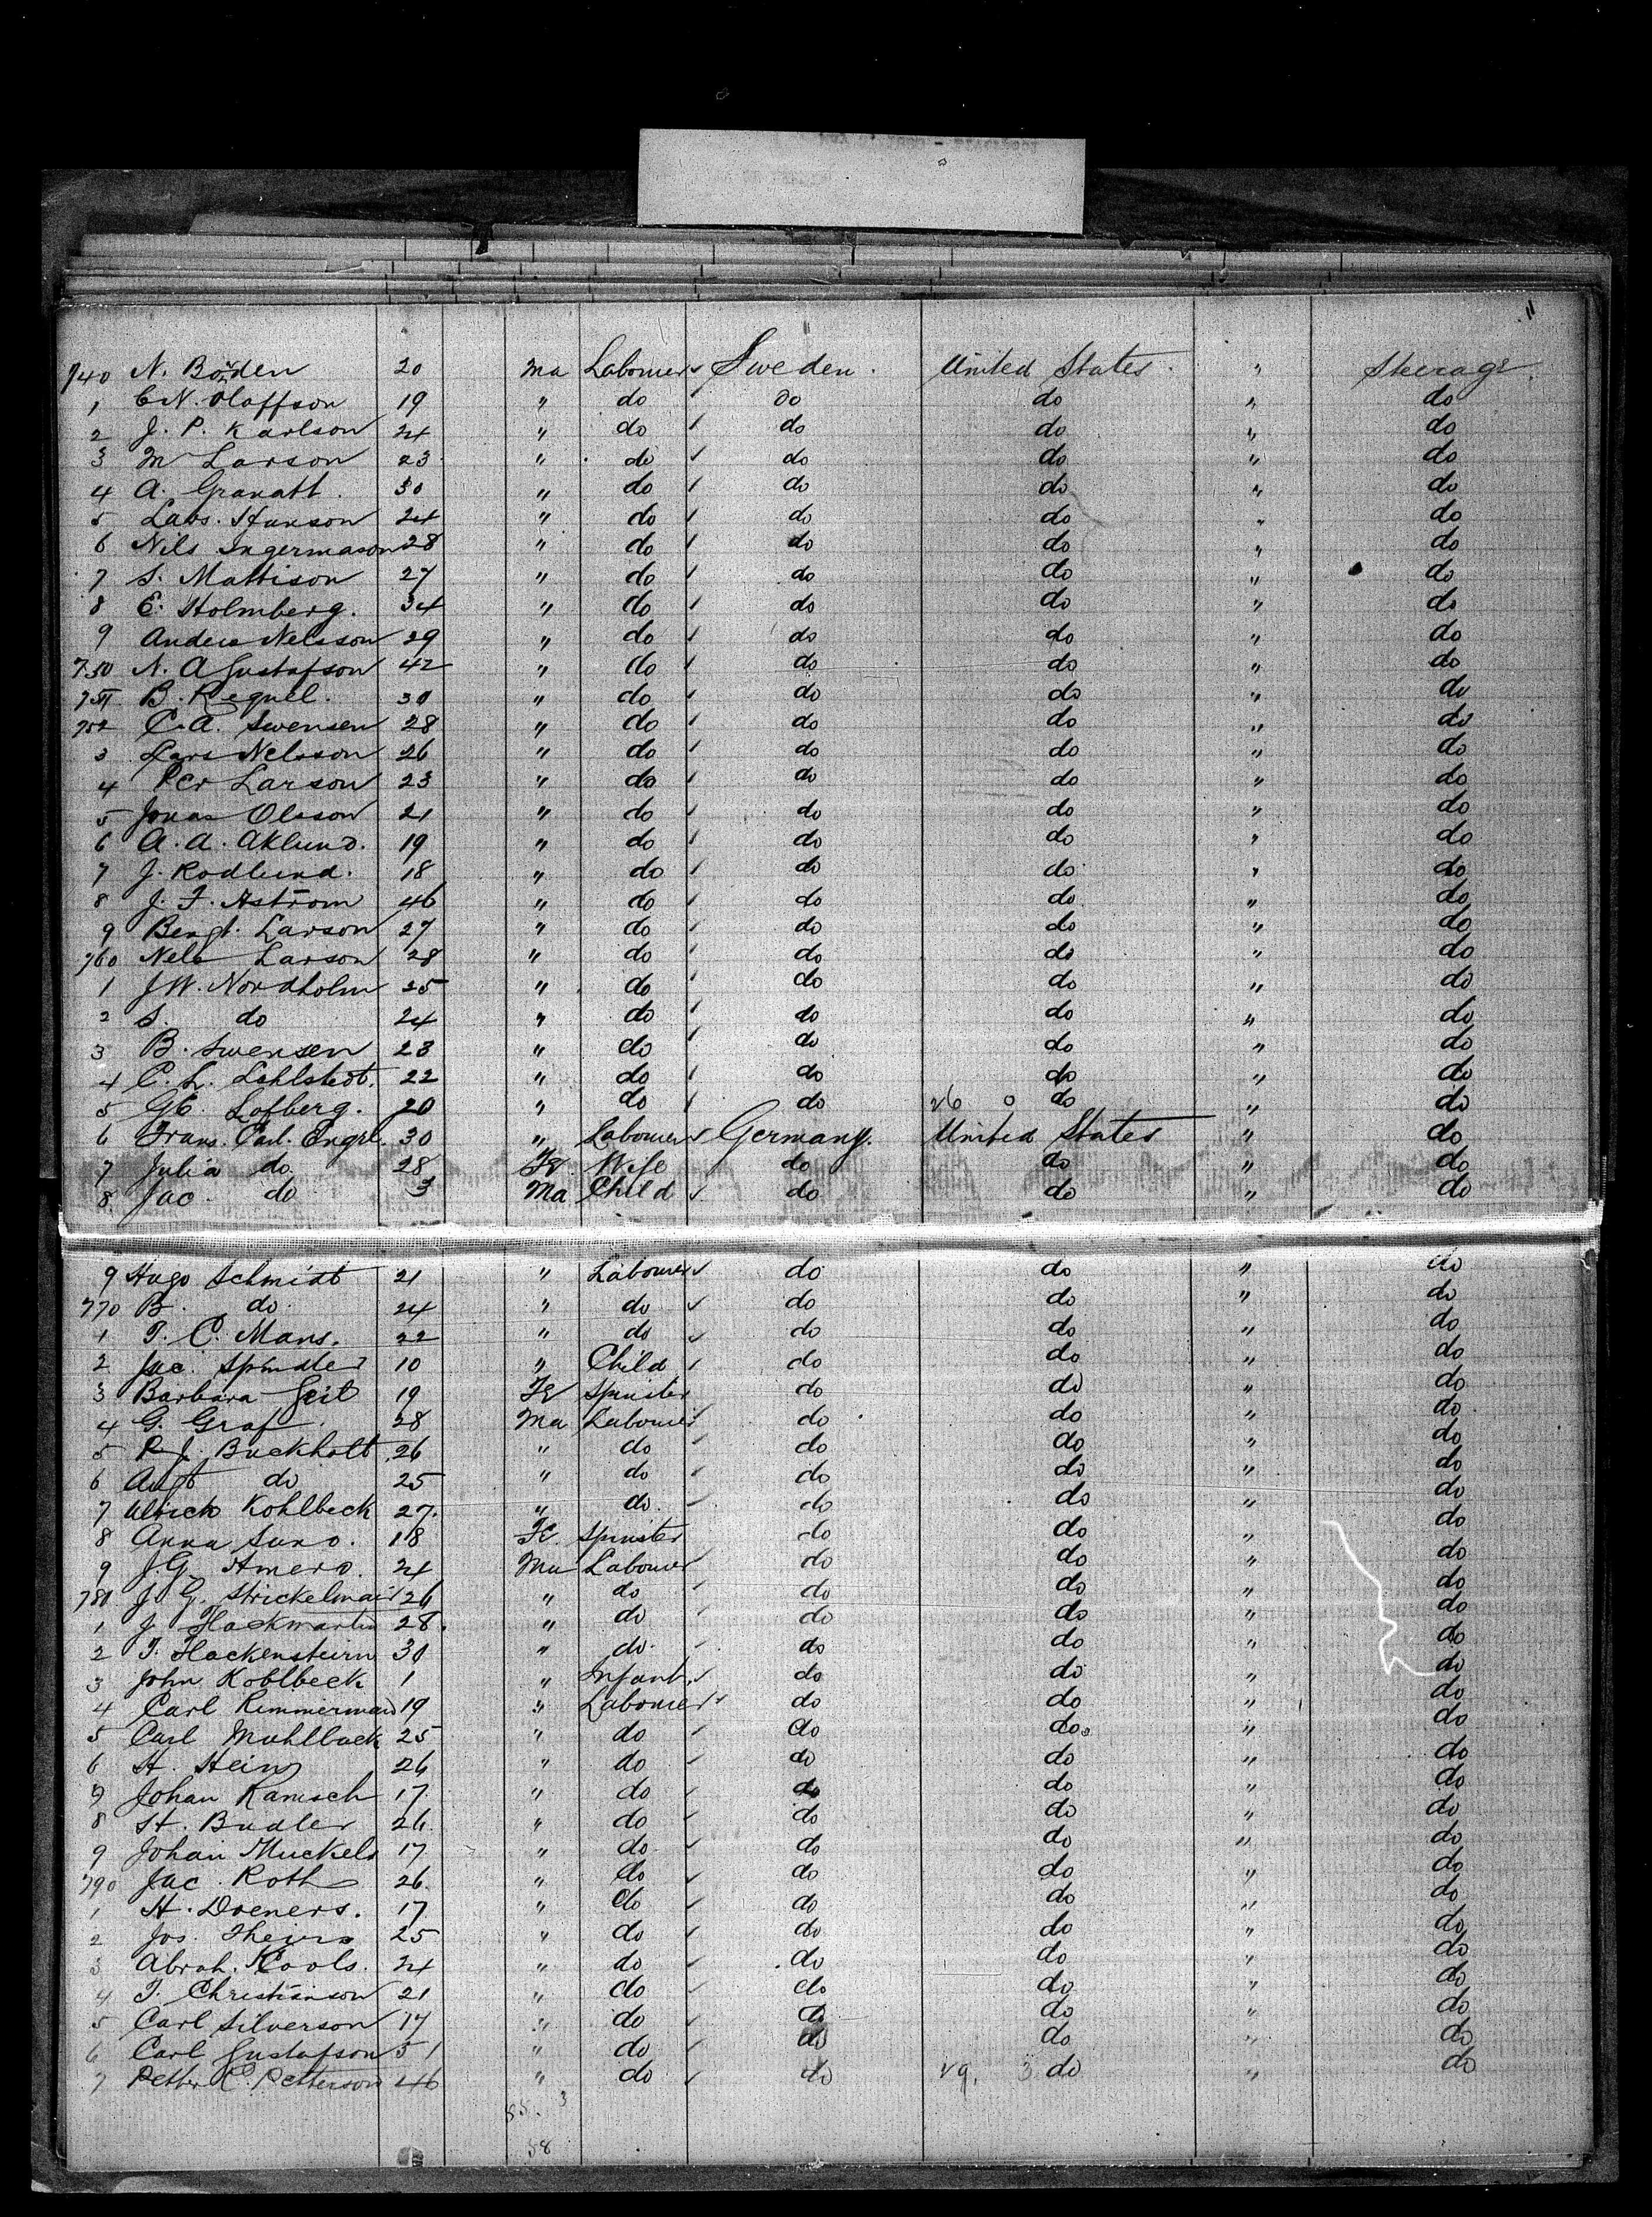 "
740 N. Boden 20 Ma Labourer Sweden. United States. " Steerage.
1 C N. Olaffson 19 " do do do " do
2 J. P. Karlson 24 " do do do " do
3 M Larson 23 " do do do " do
4 A. Granatt. 30 " do do do " do
5 Lars. Hanson 24 " do do do " do
6 Nils Ingermason 28 " do do do " do
7 S. Mattison 27 " do do do " do
8 E. Holmberg. 34 " do do do " do
9 Anders Nelsson 29 " do do do " do
750 N. A Gustafson 42 " do do do " do
751 B. Requel. 30 " do do do " do
752 C. A. Swensen 28 " do do do " do
3 Lars Nelsson 26 " do do do " do
4 Per Larson 23 " do do do " do
5 Jonas Olsson 21 " do do do " do
6 A. A. Aklund. 19 " do do do " do
7 J. Rodlund. 18 " do do do " do
8 J. F. Astrom 46 " do do do " do
9 Bengt. Larson 27 " do do do " do
760 Nels Larson 28 " do do do " do
1 J W. Nordholm 25 " do do do " do
2 S. do 24 " do do do " do
3 B. Swensen 23 " do do do " do
4 C. L. Lahlstedt. 22 " do do do " do
5 G E. Lofberg. 20 " do do 26 0 do " do
6 Frans. Carl. Engel. 30 " Labourer Germany. United States " do
7 Julia do. 28 Fe. Wife do do " do
8 Jac. do 3 Ma Child do do " do
9 Hugo Schmidt 21 " Labourer do do " do
770 B. do. 24 " do do do " do
1 T. C. Mans. 22 " do do do " do
2 Jac. Spindler 10 " Child do do " do
3 Barbara Geit 19 Fe Spinster do do " do
4 G. Graf. 28 Ma Labourer do do " do
5 P. J. Buckholt 26 " do do do " do
6 Augt do 25 " do do do " do
7 Ulrich Kohlbeck 27. " do. do do " do
8 Anna Suno. 18 Fe. Spinster do do " do
9 J. G. Amero. 24 Ma Labourer do do " do
780 J. G. Strickelmair 26 " do do do " do
1 J. Hackmartin 28. " do do do " do
2 T. Hackensteirn 30 " do. do do " do
3 John Kohlbeck 1 " Infant. do do " do
4 Carl Kimmerman 19 " Labourer do do " do
5 Carl Muhlback 25 " do do do " do
6 H. Hein 26 " do do do " do
7 Johan Ramsch 17. " do do do " do
8 H. Budler 26. " do do do " do
9 Johan Muckels 17 " do do do " do
790 Jac. Roth 26. " do do do " do
1 H. Doeners. 17 " do do do " do
2 Jos. Theirs 25 " do do do " do
3 Abrah. Kools. 24 " do do do " do
4 T. Christianson 21 " do do do " do
5 Carl Silverson 17 " do do do " do
6 Carl Gustafson 51 " do do do " do
7 Petter C. Petterson 46 " do do 29. 3 do " do
55. 3
58